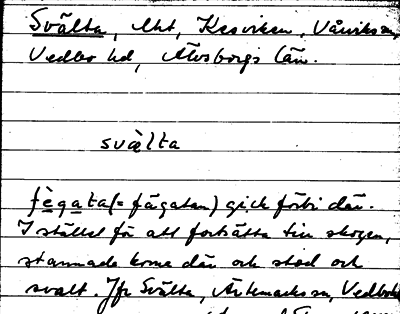 Svälta, lht, Kesviken, Vårviks sn,
Vedbo hd, Älvsborgs län.
svälta
fègata (= fägatan) gick förbi där.
I stället för att fortsätta till skogen,
stannade korna där och stod och
svalt. Jfr Svälta, Ärtemarks sn, Vedbo hd